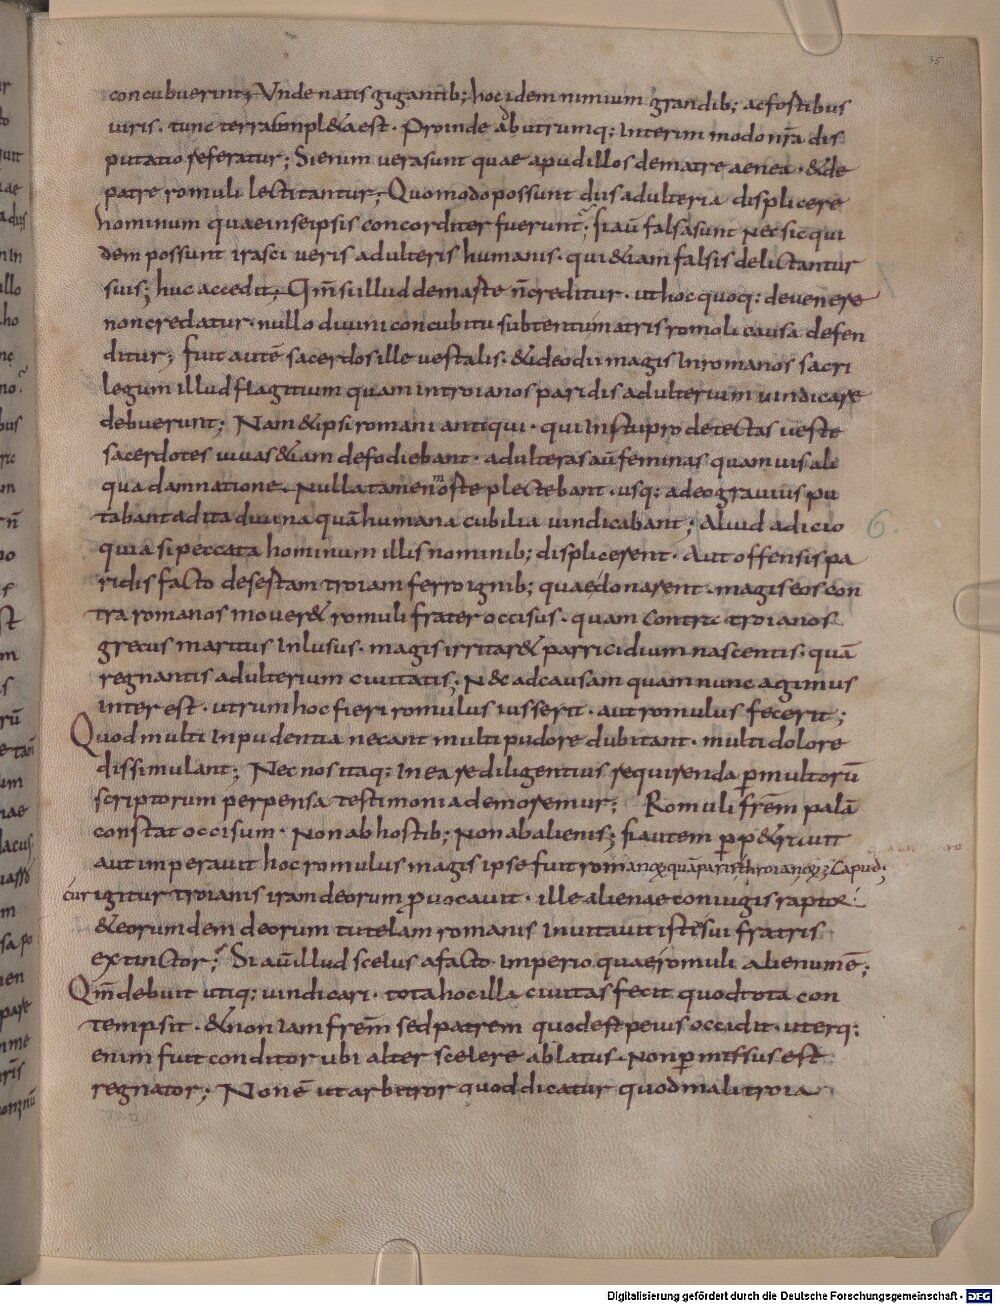 35
concubuerint; Vnde natis gigantib; hoc idem nimium grandib; ac fortibus
uiris. tunc terra conpl&a est. Proinde ab utrumq; Interim modo nr̄a dis
putatio referatur; Si enim uera sunt quae apud illos de matre aenea. & de
patre romuli lectitantur; Quomodo possunt diis adulteria displicere
hominum quae in se ipsis concorditer fuerunt; si aū falsa sunt Nec sic qui
dem possunt irasci ueris adulteris humanis. qui &iam falsis delictantur
suis; huc accedit, Qm̄ si illud de marte n̄ creditur. ut hoc quoq; de uenere
non credatur. nullo diuini concubitu subtentu matris romoli causa defen
ditur; fuit autē sacerdos ille uestalis. & ideo dii magis In romanos sacri
legum illud flagitium quam in troianos paridis adulterium uindicare
debuerunt; Nam & ipsi romani antiqui. qui In stupro detectas ueste
sacerdotes uiuas &iam defodiebant. adulteras aū feminas quamuis ali
qua damnatione. Nulla tamen morte plectebant. usq; adeo grauius pu
tabant adita diuina quā humana cubilia uindicabant; Aliud adicio
quia si peccata hominum illis nominib; displicerent. Aut offensis pa
ridis facto desertam troiam ferro ignib; quae donarent. magis eos con
tra romanos mouer& romuli frater occisus. quam contra troianos
grecus maritus Inlusus. magis irritar& parricidium nascentis. quā
regnantis adulterium ciuitatis. N&c ad causam quam nunc agimus
Inter est. utrum hoc fieri romulus iusserit. aut romulus fecerit;
Quod multi Inpudentia necant multi pudore dubitant. multi dolore
dissimulant; Nec nos itaq; In ea re diligentius requirenda p multorū
scriptorum perpensa testimonia demoremur; Romuli fr̄em palā
constat occisum. Non ab hostib; Non ab alienis; si autem pp&rauit
aut imperauit hoc romulus magis ipse fuit romanoꝝ quā paris throianoꝝ; Capud;
cur igitur troianis iram deorum puocauit. ille alienae coniugis raptor
& eorumdem deorum tutelam romanis Inuitauit iste sui fratris
extinctor; Si aū illud scelus a facto Imperio quae romuli alienum ē;
Qm̄ debuit utiq; uindicari. tota hoc illa ciuitas fecit quod tota con
tempsit. & non Iam fr̄em sed patrem quod est peius occidit. uterq;
enim fuit conditor ubi alter scelere ablatus. Non pmissus est
regnator; Non ē ut arbitror quod dicatur quod mali troia
6.
Digitalisierung gefördert durch die Deutsche Forschungsgemeinschaft - DFG